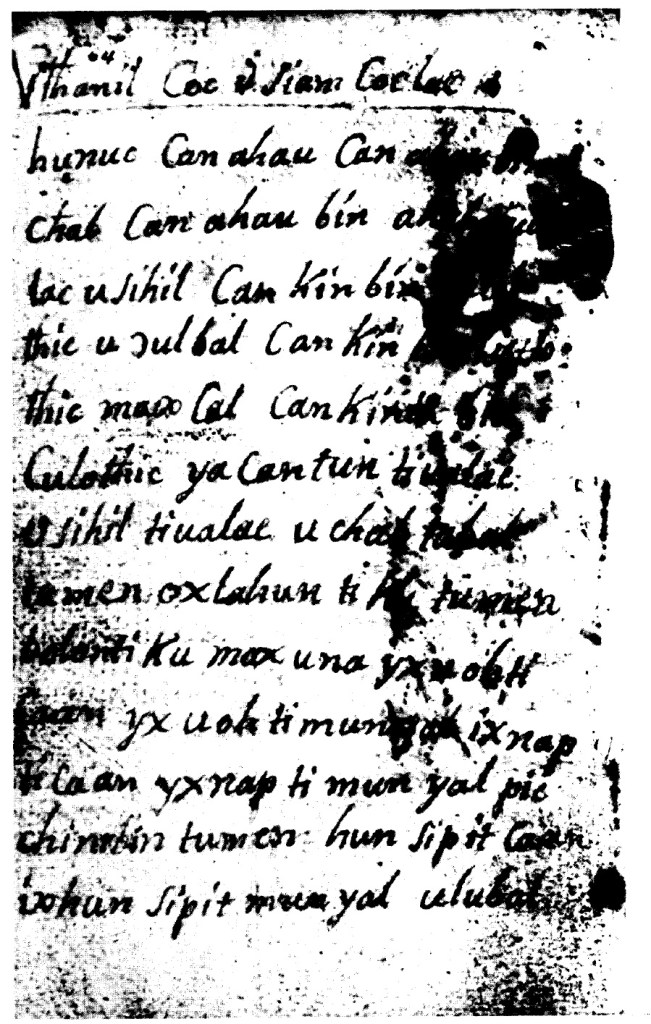 Uthanil Coc u siam Coclac u
hunuc Can ahau Can
chab Can ahau bin
lac u sihil Can kin bin
thic u ɔulbal Can kin
thic max Cal Can kin
Culothic yacantun tiualac
U sihil tiualac u chab
tumen oxlahun ti ku tumen
bolonti ku max una yx uoh ti
Caan yx uoh ti munyal ix nap
ti Caan yx nap ti munyal pic
chin tumen hun sipit Caan
hun sipit munyal ulubal